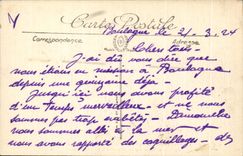 Carte Postale
Correspondance
Adresse
Boulogne le 21.3.24
Chers tous
J'ai dû vous dire que
nous étions en mission à Boulogne
depuis une quinzaine déjà
Jusqu'ici nous avons profité
d'un temps merveilleux et ne nous
sommes pas trop embêtés. Dimanche
nous sommes allés à la mer et
nous avons rapporté des coquillages. de